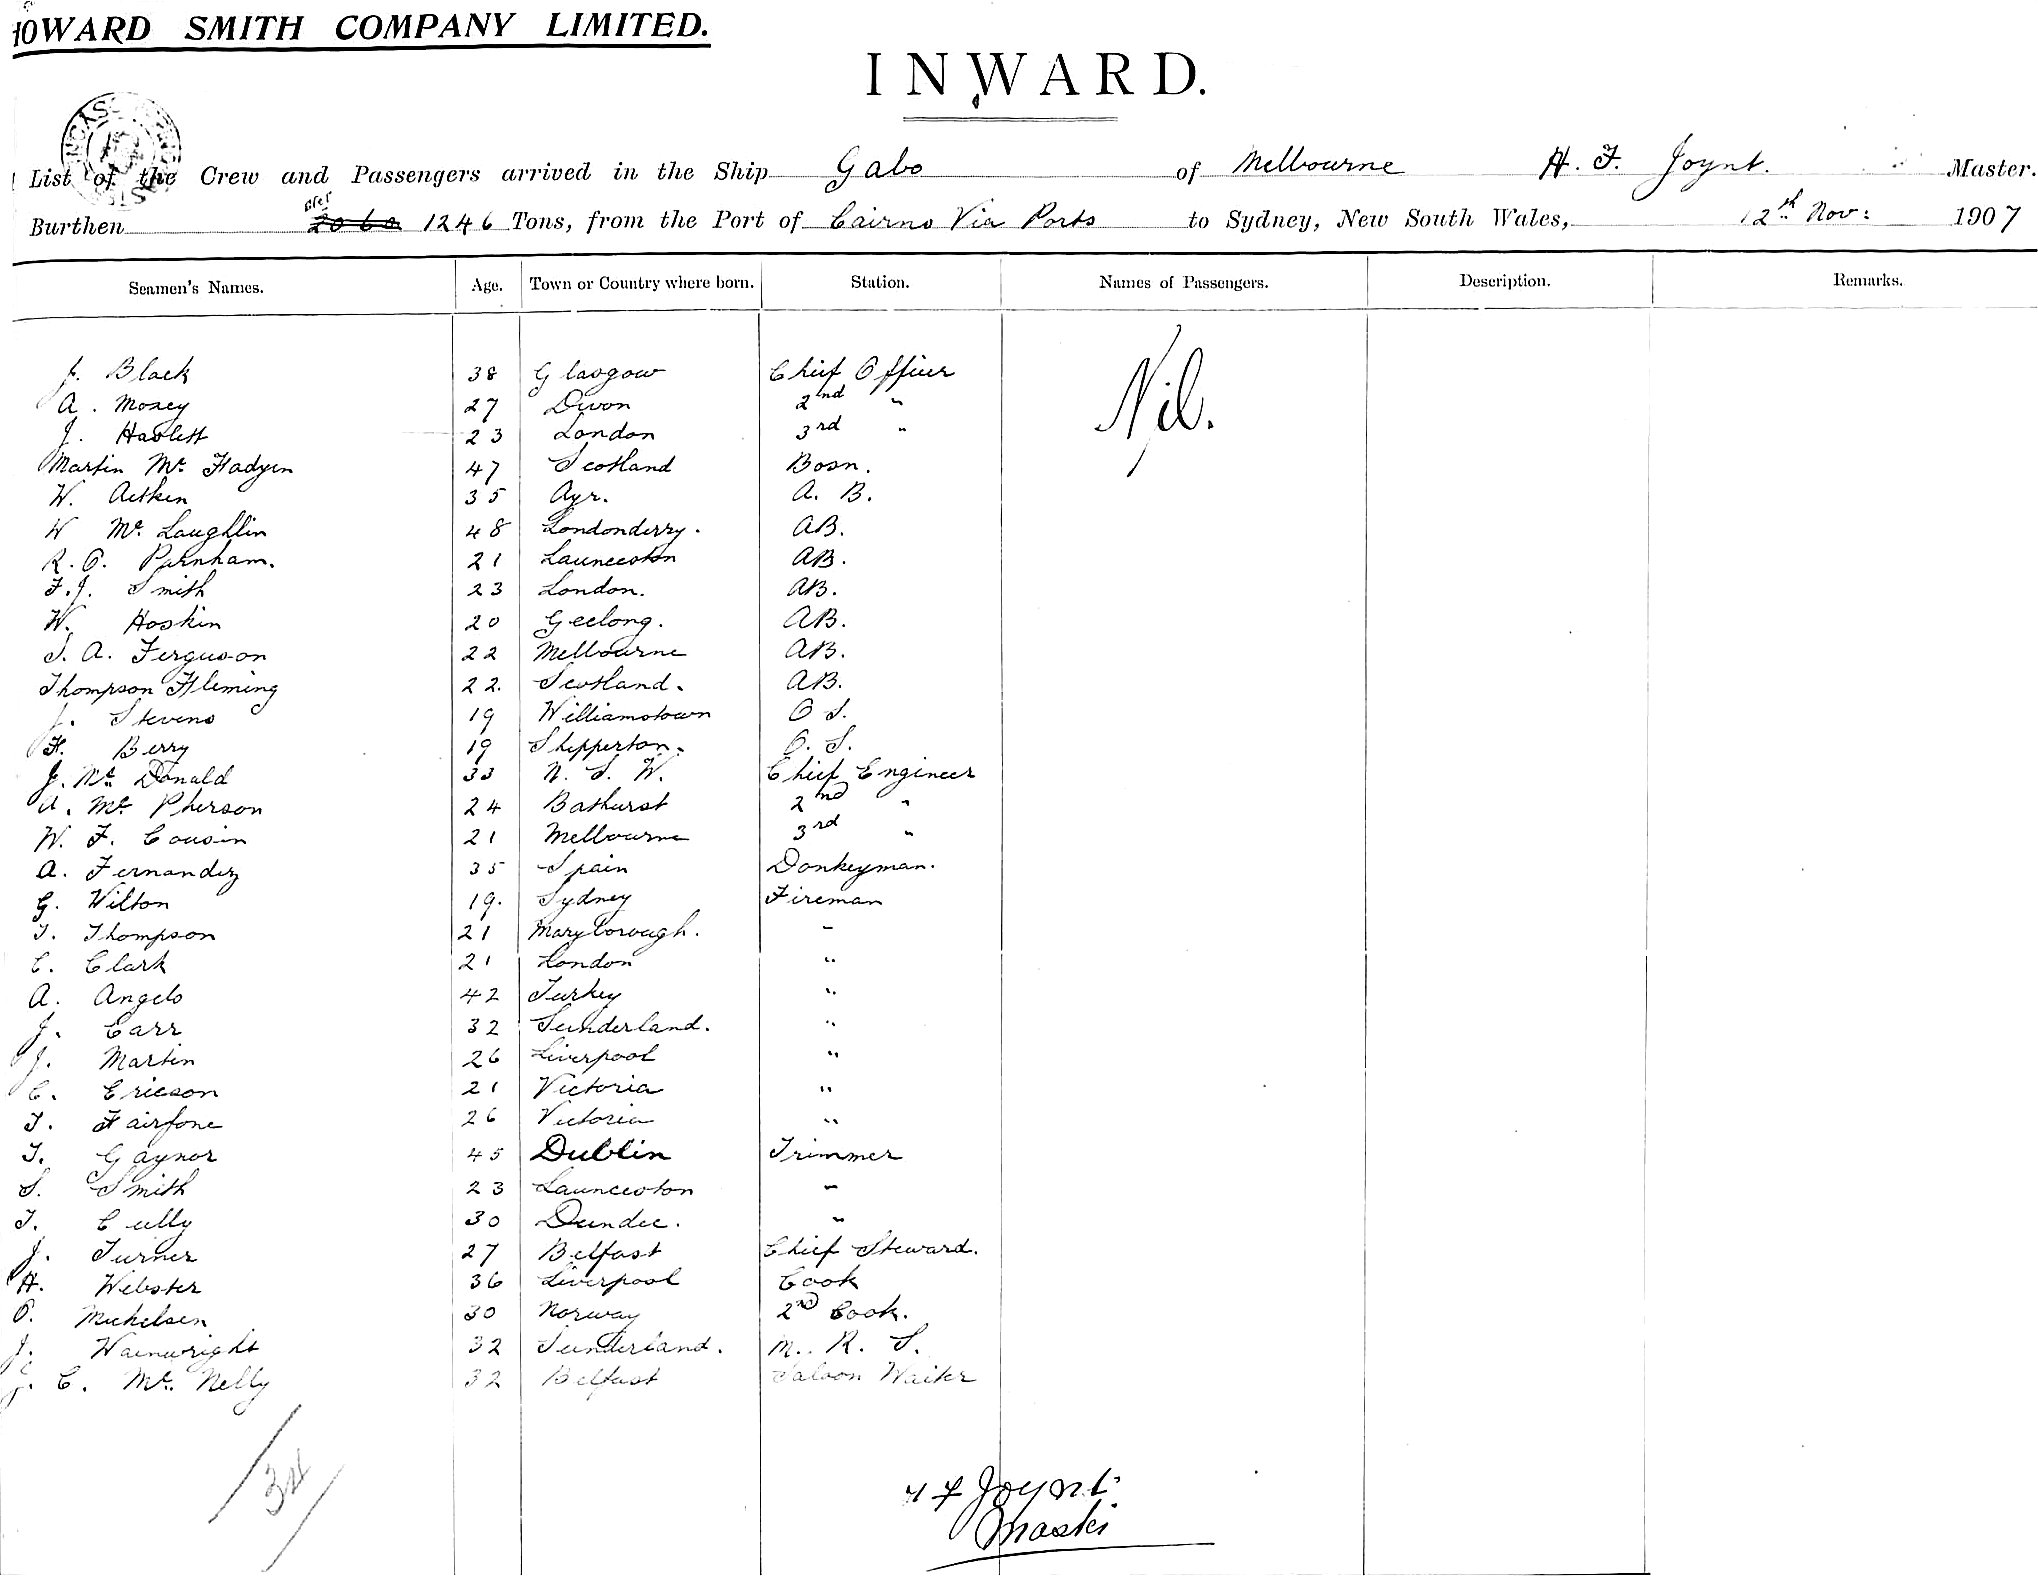 HOWARD SMITH COMPANY LIMITED.
INWARD.
List of the Crew and Passengers arrived in the Ship Gabo of Melbourne H. F. Joynt. Master.
Burthen 2060 1246 Tons, from the Port of Cairns Via Ports to Sydney, New South Wales, 12th Nov: 1907
Seamen's Names. Age. Town or Country where born. Station. Names of Passengers. Description. Remarks.
J. Black 38 Glasgow Chief Officer
Nil.
A. Moxey 27 Devon 2nd "
J. Haslett 23 London 3rd "
Martin Mc Fadyen 47 Scotland Bosn.
W. Aitken 35 Ayr. A. B.
W Mc Laughlin 48 Londonderry. AB.
R. O. Parnham. 21 Launceston AB.
F. J. Smith 23 London. AB.
W. Hoskin 20 Geelong. AB.
S. A. Ferguson 22 Melbourne AB.
Thompson Fleming 22. Scotland. AB.
J. Stevens 19 Williamstown O S.
H. Berry 19 Shepperton. O. S.
J. Mc Donald 33 N. S. W. Chief Engineer
A. Mc Pherson 24 Bathurst 2nd "
W. F. Cousin 21 Melbourne 3rd "
A. Fernandez 35 Spain Donkeyman.
G. Wilton 19. Sydney Fireman
T. Thompson 21 Maryborough. "
C. Clark 21 London "
A. Angelo 42 Turkey "
J. Carr 32 Sunderland. "
J. Martin 26 Liverpool "
C. Ericson 21 Victoria "
T. Fairfone 26 Victoria "
T. Gaynor 45 Dublin Trimmer
S. Smith 23 Launceston "
T. Cully 30 Dundee. "
J. Turner 27 Belfast Chief Steward.
H. Webster 36 Liverpool Cook
O. Michelsen 30 Norway 2nd Cook.
J. Wainwright 32 Sunderland. M. R. S.
J. C. Mc Nelly 32 Belfast Saloon Waiter
34
H F Joynt
Master